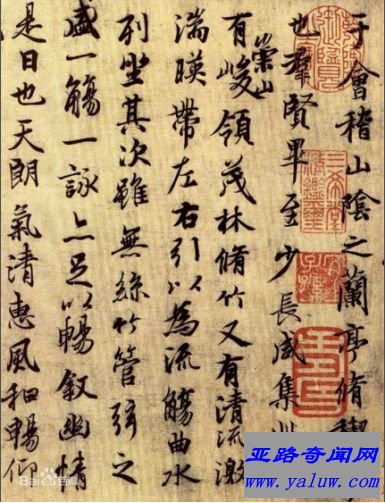 于會稽山陰之蘭亭脩禊
也羣賢畢至少長咸集此
有崇山峻領茂林脩竹又有清流激
湍暎帶左右引以為流觴曲水
列坐其次雖無絲竹管弦之
盛一觴一詠亦足以暢敘幽情
是日也天朗氣清惠風和暢仰
三希堂精鑑璽
宜子孫
Bai百科
亚路奇闻网
www.yaluw.com